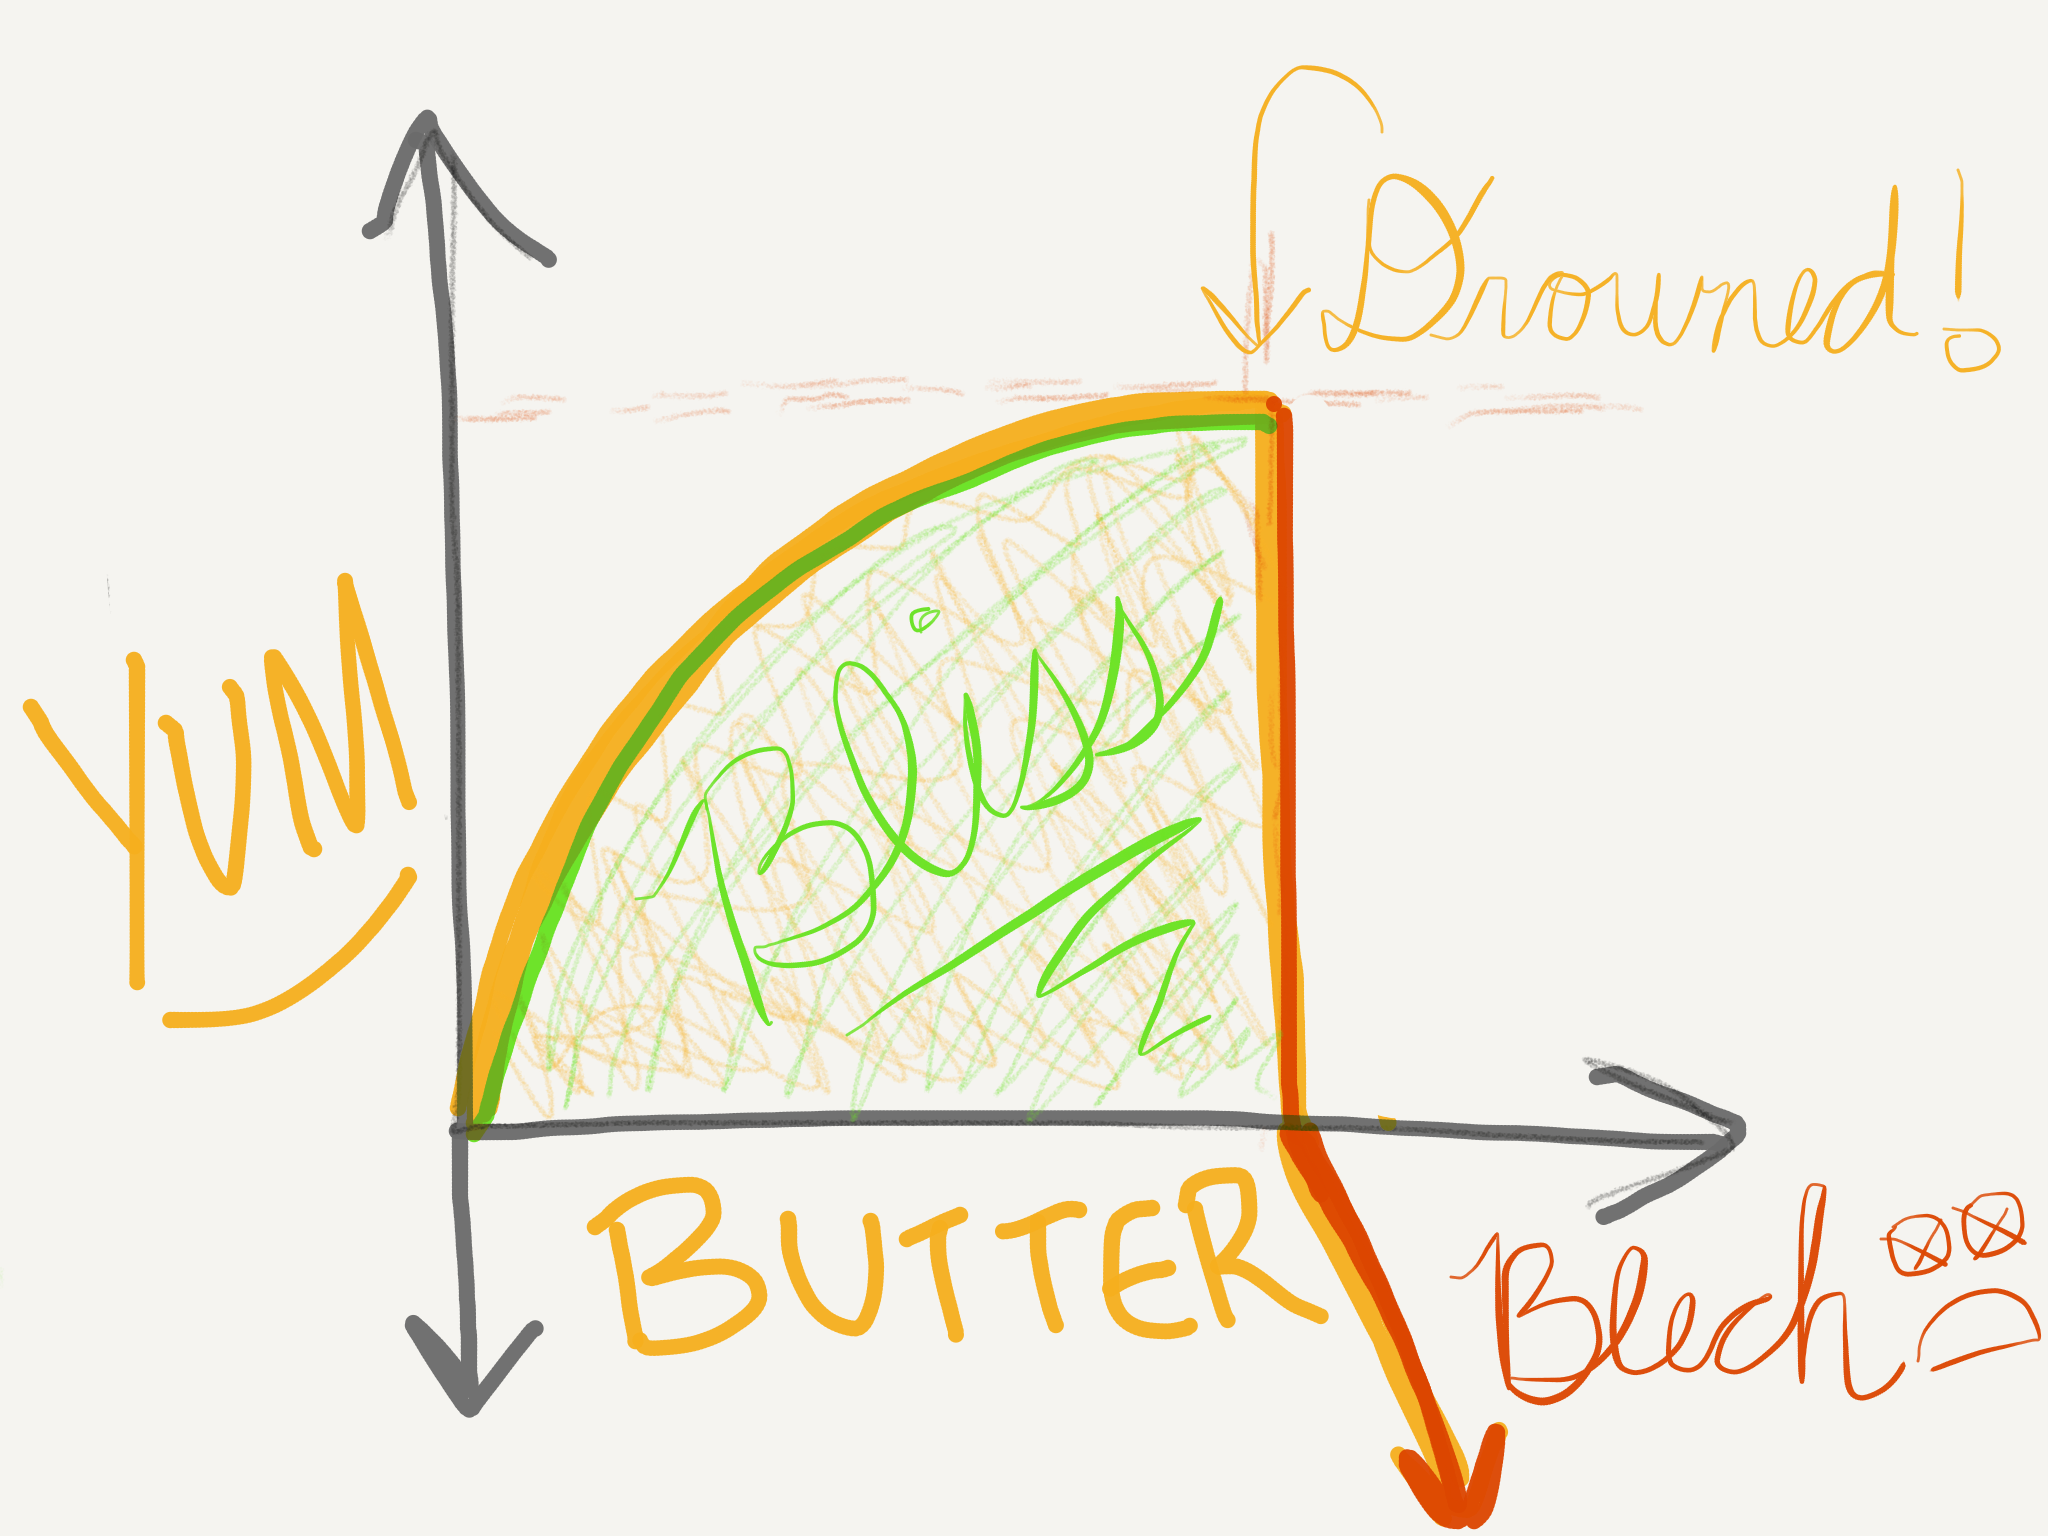 Drowned!
YUM
Bliss
BUTTER
Blech